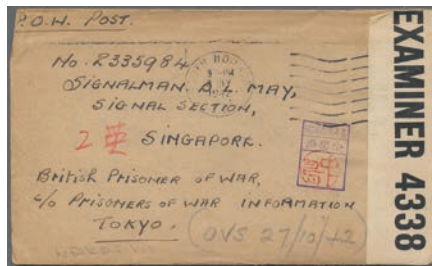 P.O.W. POST.
No. 2335984
SIGNALMAN A.L. MAY,
SIGNAL SECTION,
2 SINGAPORE.
British Prisoner of War,
c/o Prisoners of War Information
TOKYO.
(OVS 27/10/42)
EXAMINER 4338